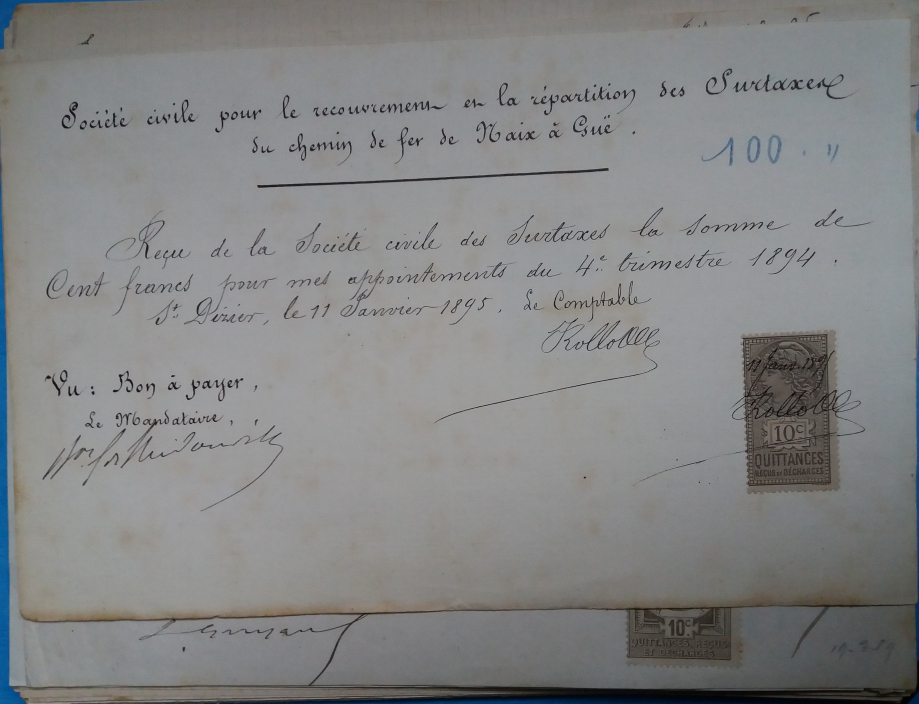 Société civile pour le recouvrement et la répartition des Surtaxes
du chemin de fer de Naix à Guë.
100 . "
Reçu de la Société civile des Surtaxes la somme de
Cent francs pour mes appointements du 4e trimestre 1894.
St. Dizier, le 11 Janvier 1895. Le Comptable
Vu : Bon à payer,
Le Mandataire,
11 Janv. 1895
10c
QUITTANCES
REÇUS ET DÉCHARGES
10c
QUITTANCES, REÇUS
ET DÉCHARGES